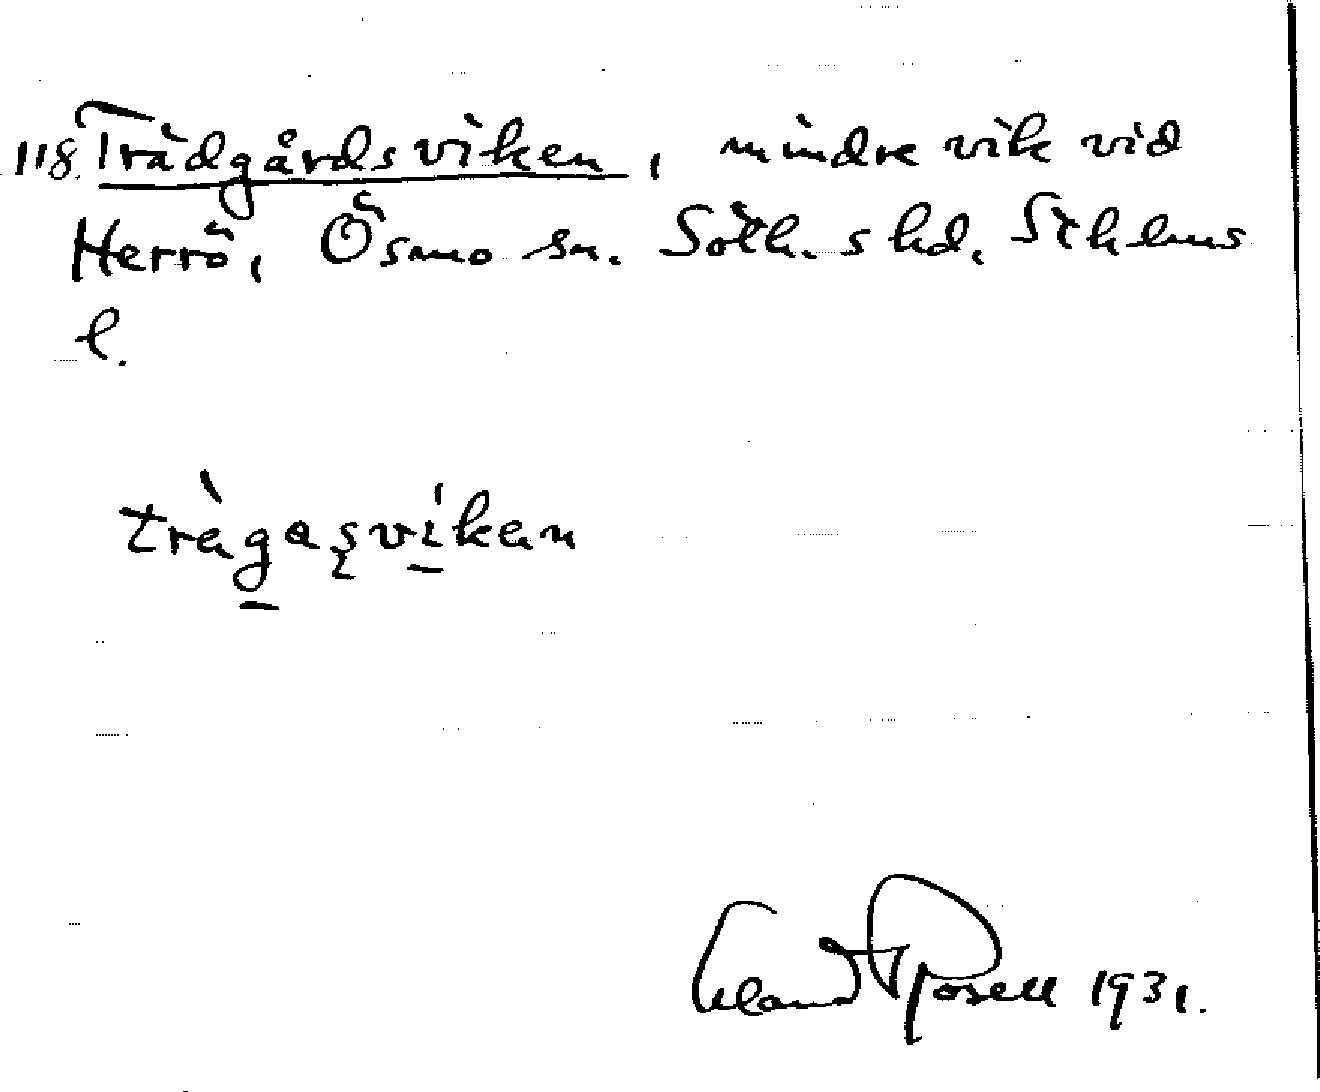 118. Trädgårdsviken, mindre vik vid
Herrö, Ösmo sn. Soth. s hd. Sthlms
l.
trägasvikan
Erland Rosell 1931.